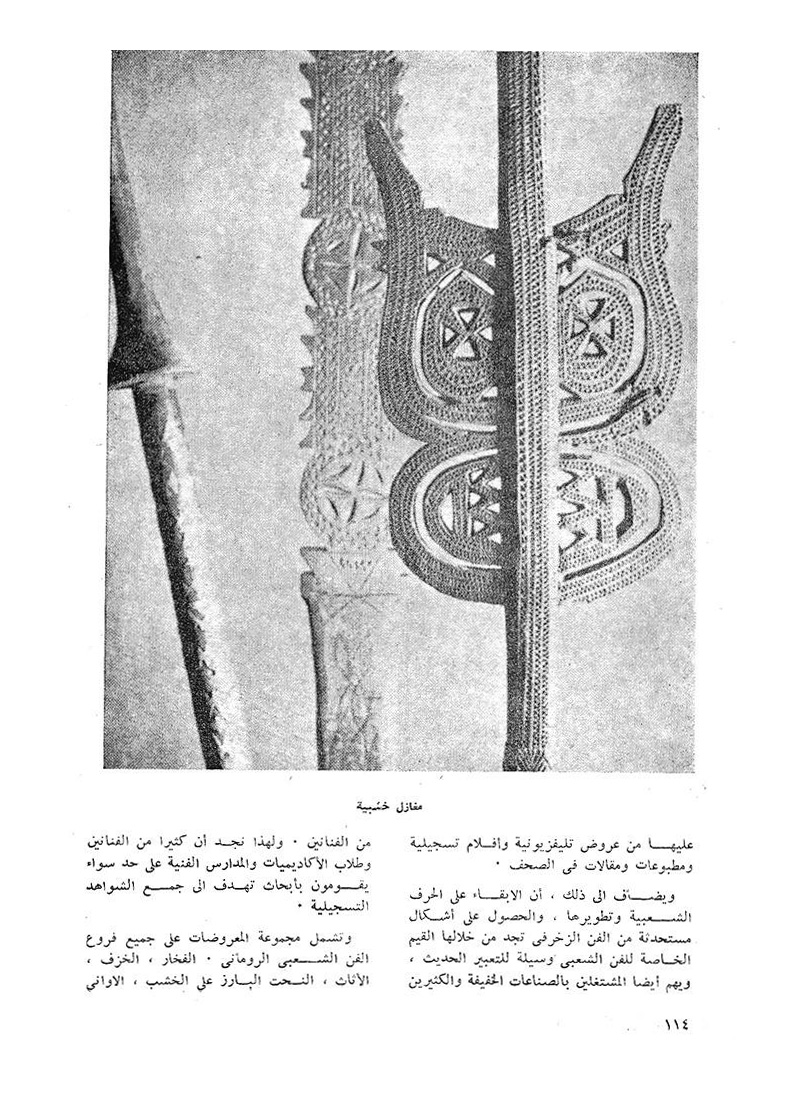 مغازل خشبية
عليهــا من عروض تليفزيونية وأفــلام تسجيلية
ومطبوعات ومقالات فى الصحف ٠
ويضــاف الى ذلك ، أن الابقــاء على الحرف
الشــعبية وتطويرها ، والحصول على أشــكال
مستحدثة من الفن الزخرفى تجد من خلالها القيم
الخــاصة للفن الشعبى وسيلة للتعبير الحديث ،
ويهم أيضا المشتغلين بالصناعات الخفيفة والكثيرين
من الفنانين ٠ ولهذا نجــد أن كثيرا من الفنانين
وطلاب الأكاديميات والمدارس الفنية على حد سواء
يقــومون بأبحاث تهــدف الى جمــع الشواهد
التسجيلية ٠
وتشمل مجموعة المعروضات على جميع فروع
الفن الشــعبى الرومانى ٠ الفخار ، الخزف ،
الأثاث ، النــحت البــارز على الخشب ، الاوانى
١١٤